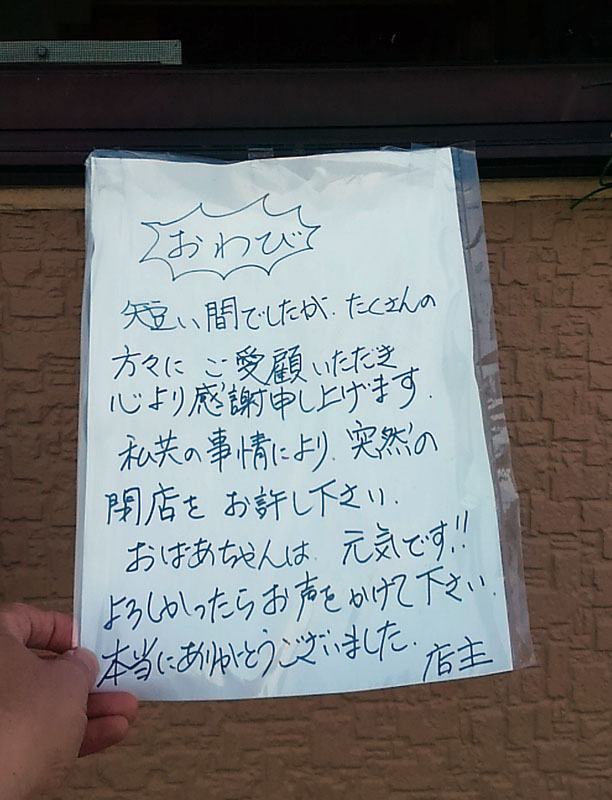 おわび
短い間でしたが、たくさんの
方々に ご愛顧いただき
心より感謝申し上げます.
私共の事情により、突然の
閉店を お許し下さい.
おばあちゃんは 元気です!!
よろしかったらお声をかけて下さい.
本当にありがとうございました.
店主